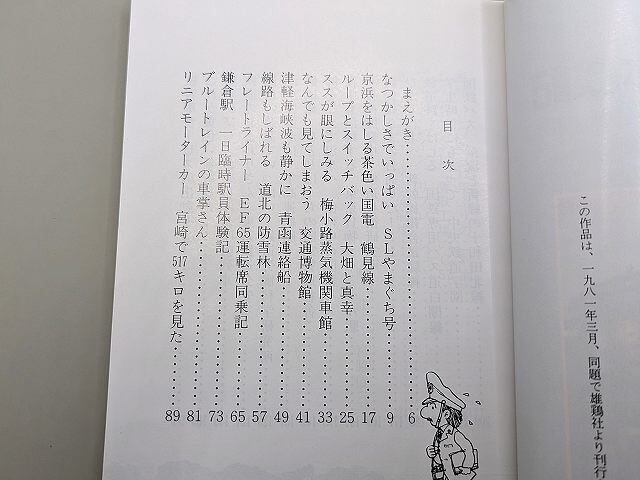 この作品は、一九八一年三月、同題で雄鶏社より刊行
目次
まえがき……………6
なつかしさでいっぱい　SLやまぐち号……………9
京浜をはしる茶色い国電　鶴見線……………17
ループとスイッチバック　大畑と真幸……………25
ススが眼にしみる　梅小路蒸気機関車館……………33
なんでも見てしまおう　交通博物館……………41
津軽海峡波も静かに　青函連絡船……………49
線路もしばれる　道北の防雪林……………57
フレートライナー　EF65運転席同乗記……………65
鎌倉駅　一日臨時駅員体験記……………73
ブルートレインの車掌さん……………81
リニアモーターカー　宮崎で517キロを見た……………89